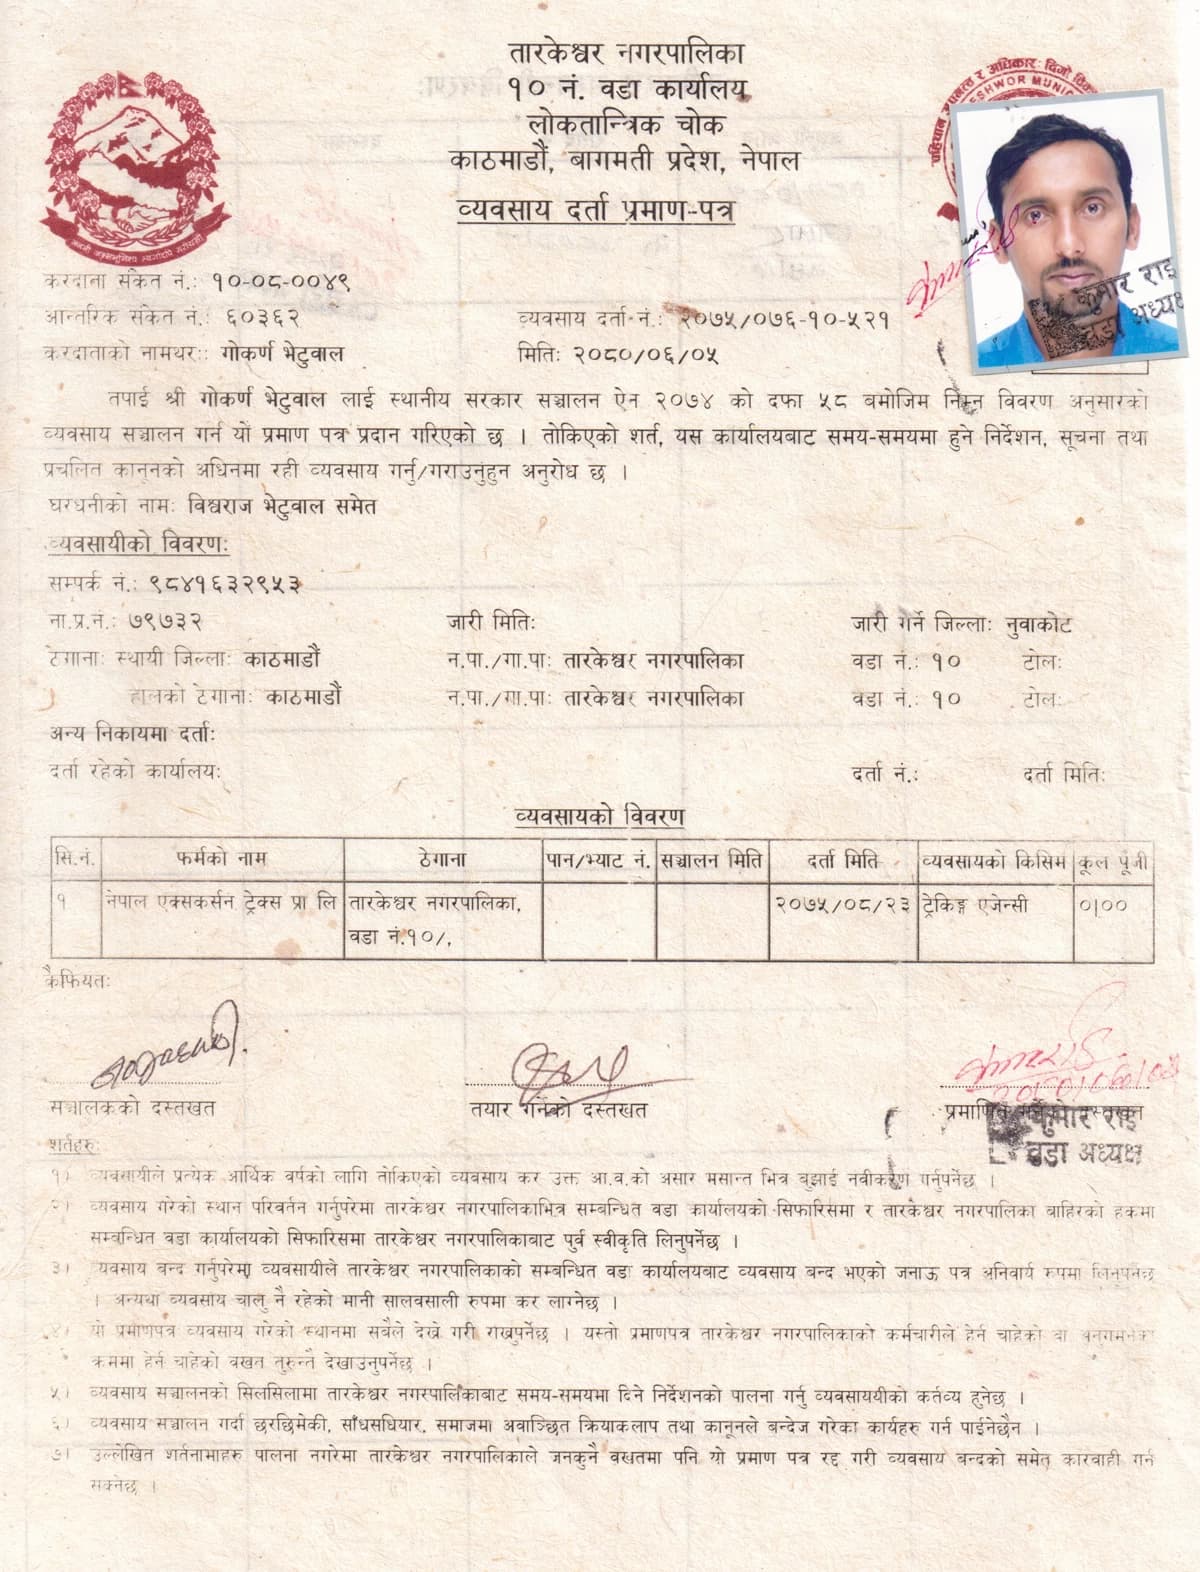 तारकेश्वर नगरपालिका
१० नं. वडा कार्यालय
लोकतान्त्रिक चोक
काठमाडौं, बागमती प्रदेश, नेपाल
व्यवसाय दर्ता प्रमाण-पत्र
करदाना संकेत नं.: १०-०८-००४९
आन्तरिक संकेत नं.: ६०३६२ व्यवसाय दर्ता नं.: २०७५/०७६-१०-५२१
करदाताको नामथर:: गोकर्ण भेटुवाल मिति: २०८०/०६/०५
कुमार राई
वडा अध्यक्ष
तपाई श्री गोकर्ण भेटुवाल लाई स्थानीय सरकार सञ्चालन ऐन २०७४ को दफा ५८ बमोजिम निम्न विवरण अनुसारको
व्यवसाय सञ्चालन गर्न यो प्रमाण पत्र प्रदान गरिएको छ । तोकिएको शर्त, यस कार्यालयबाट समय-समयमा हुने निर्देशन, सूचना तथा
प्रचलित कानूनको अधिनमा रही व्यवसाय गर्नु/गराउनुहुन अनुरोध छ ।
घरधनीको नाम: विश्वराज भेटुवाल समेत
व्यवसायीको विवरण:
सम्पर्क नं.: ९८४१६३२९५३
ना.प्र.नं.: ७९७३२ जारी मिति: जारी गर्ने जिल्ला: नुवाकोट
ठेगाना: स्थायी जिल्ला: काठमाडौं न.पा./गा.पा: तारकेश्वर नगरपालिका वडा नं.: १० टोल:
हालको ठेगाना: काठमाडौं न.पा./गा.पा: तारकेश्वर नगरपालिका वडा नं.: १० टोल:
अन्य निकायमा दर्ता:
दर्ता रहेको कार्यालय: दर्ता नं.: दर्ता मिति:
व्यवसायको विवरण
सि.नं. फर्मको नाम ठेगाना पान/भ्याट नं. सञ्चालन मिति दर्ता मिति व्यवसायको किसिम कूल पूंजी
१ नेपाल एक्सकर्सन ट्रेक्स प्रा लि तारकेश्वर नगरपालिका, २०७५/०८/२३ ट्रेकिङ्ग एजेन्सी ०|००
वडा नं.१०/,
कैफियत:
सञ्चालकको दस्तखत तयार गर्नेको दस्तखत प्रमाणित गर्नेको दस्तखत
कुमार राई
वडा अध्यक्ष
शर्तहरु:
१) व्यवसायीले प्रत्येक आर्थिक वर्षको लागि तोकिएको व्यवसाय कर उक्त आ.व.को असार मसान्त भित्र बुझाई नवीकरण गर्नुपर्नेछ ।
२) व्यवसाय गरेको स्थान परिवर्तन गर्नुपरेमा तारकेश्वर नगरपालिकाभित्र सम्बन्धित वडा कार्यालयको सिफारिसमा र तारकेश्वर नगरपालिका बाहिरको हकमा
सम्बन्धित वडा कार्यालयको सिफारिसमा तारकेश्वर नगरपालिकाबाट पुर्व स्वीकृति लिनुपर्नेछ ।
३) व्यवसाय बन्द गर्नुपरेमा व्यवसायीले तारकेश्वर नगरपालिकाको सम्बन्धित वडा कार्यालयबाट व्यवसाय बन्द भएको जनाऊ पत्र अनिवार्य रुपमा लिनुपर्नेछ
। अन्यथा व्यवसाय चालु नै रहेको मानी सालवसाली रुपमा कर लाग्नेछ ।
४) यो प्रमाणपत्र व्यवसाय गरेको स्थानमा सबैले देख्ने गरी राख्नुपर्नेछ । यस्तो प्रमाणपत्र तारकेश्वर नगरपालिकाको कर्मचारीले हेर्न चाहेको वा अनुगमनका
क्रममा हेर्न चाहेको वखत तुरुन्तै देखाउनुपर्नेछ ।
५) व्यवसाय सञ्चालनको सिलसिलामा तारकेश्वर नगरपालिकाबाट समय-समयमा दिने निर्देशनको पालना गर्नु व्यवसाययीको कर्तव्य हुनेछ ।
६) व्यवसाय सञ्चालन गर्दा छरछिमेकी, साँधसधियार, समाजमा अवाञ्छित क्रियाकलाप तथा कानूनले बन्देज गरेका कार्यहरु गर्न पाईनेछैन ।
७) उल्लेखित शर्तनामाहरु पालना नगरेमा तारकेश्वर नगरपालिकाले जनकुनै वखतमा पनि यो प्रमाण पत्र रद्द गरी व्यवसाय बन्दको समेत कारवाही गर्न
सक्नेछ ।